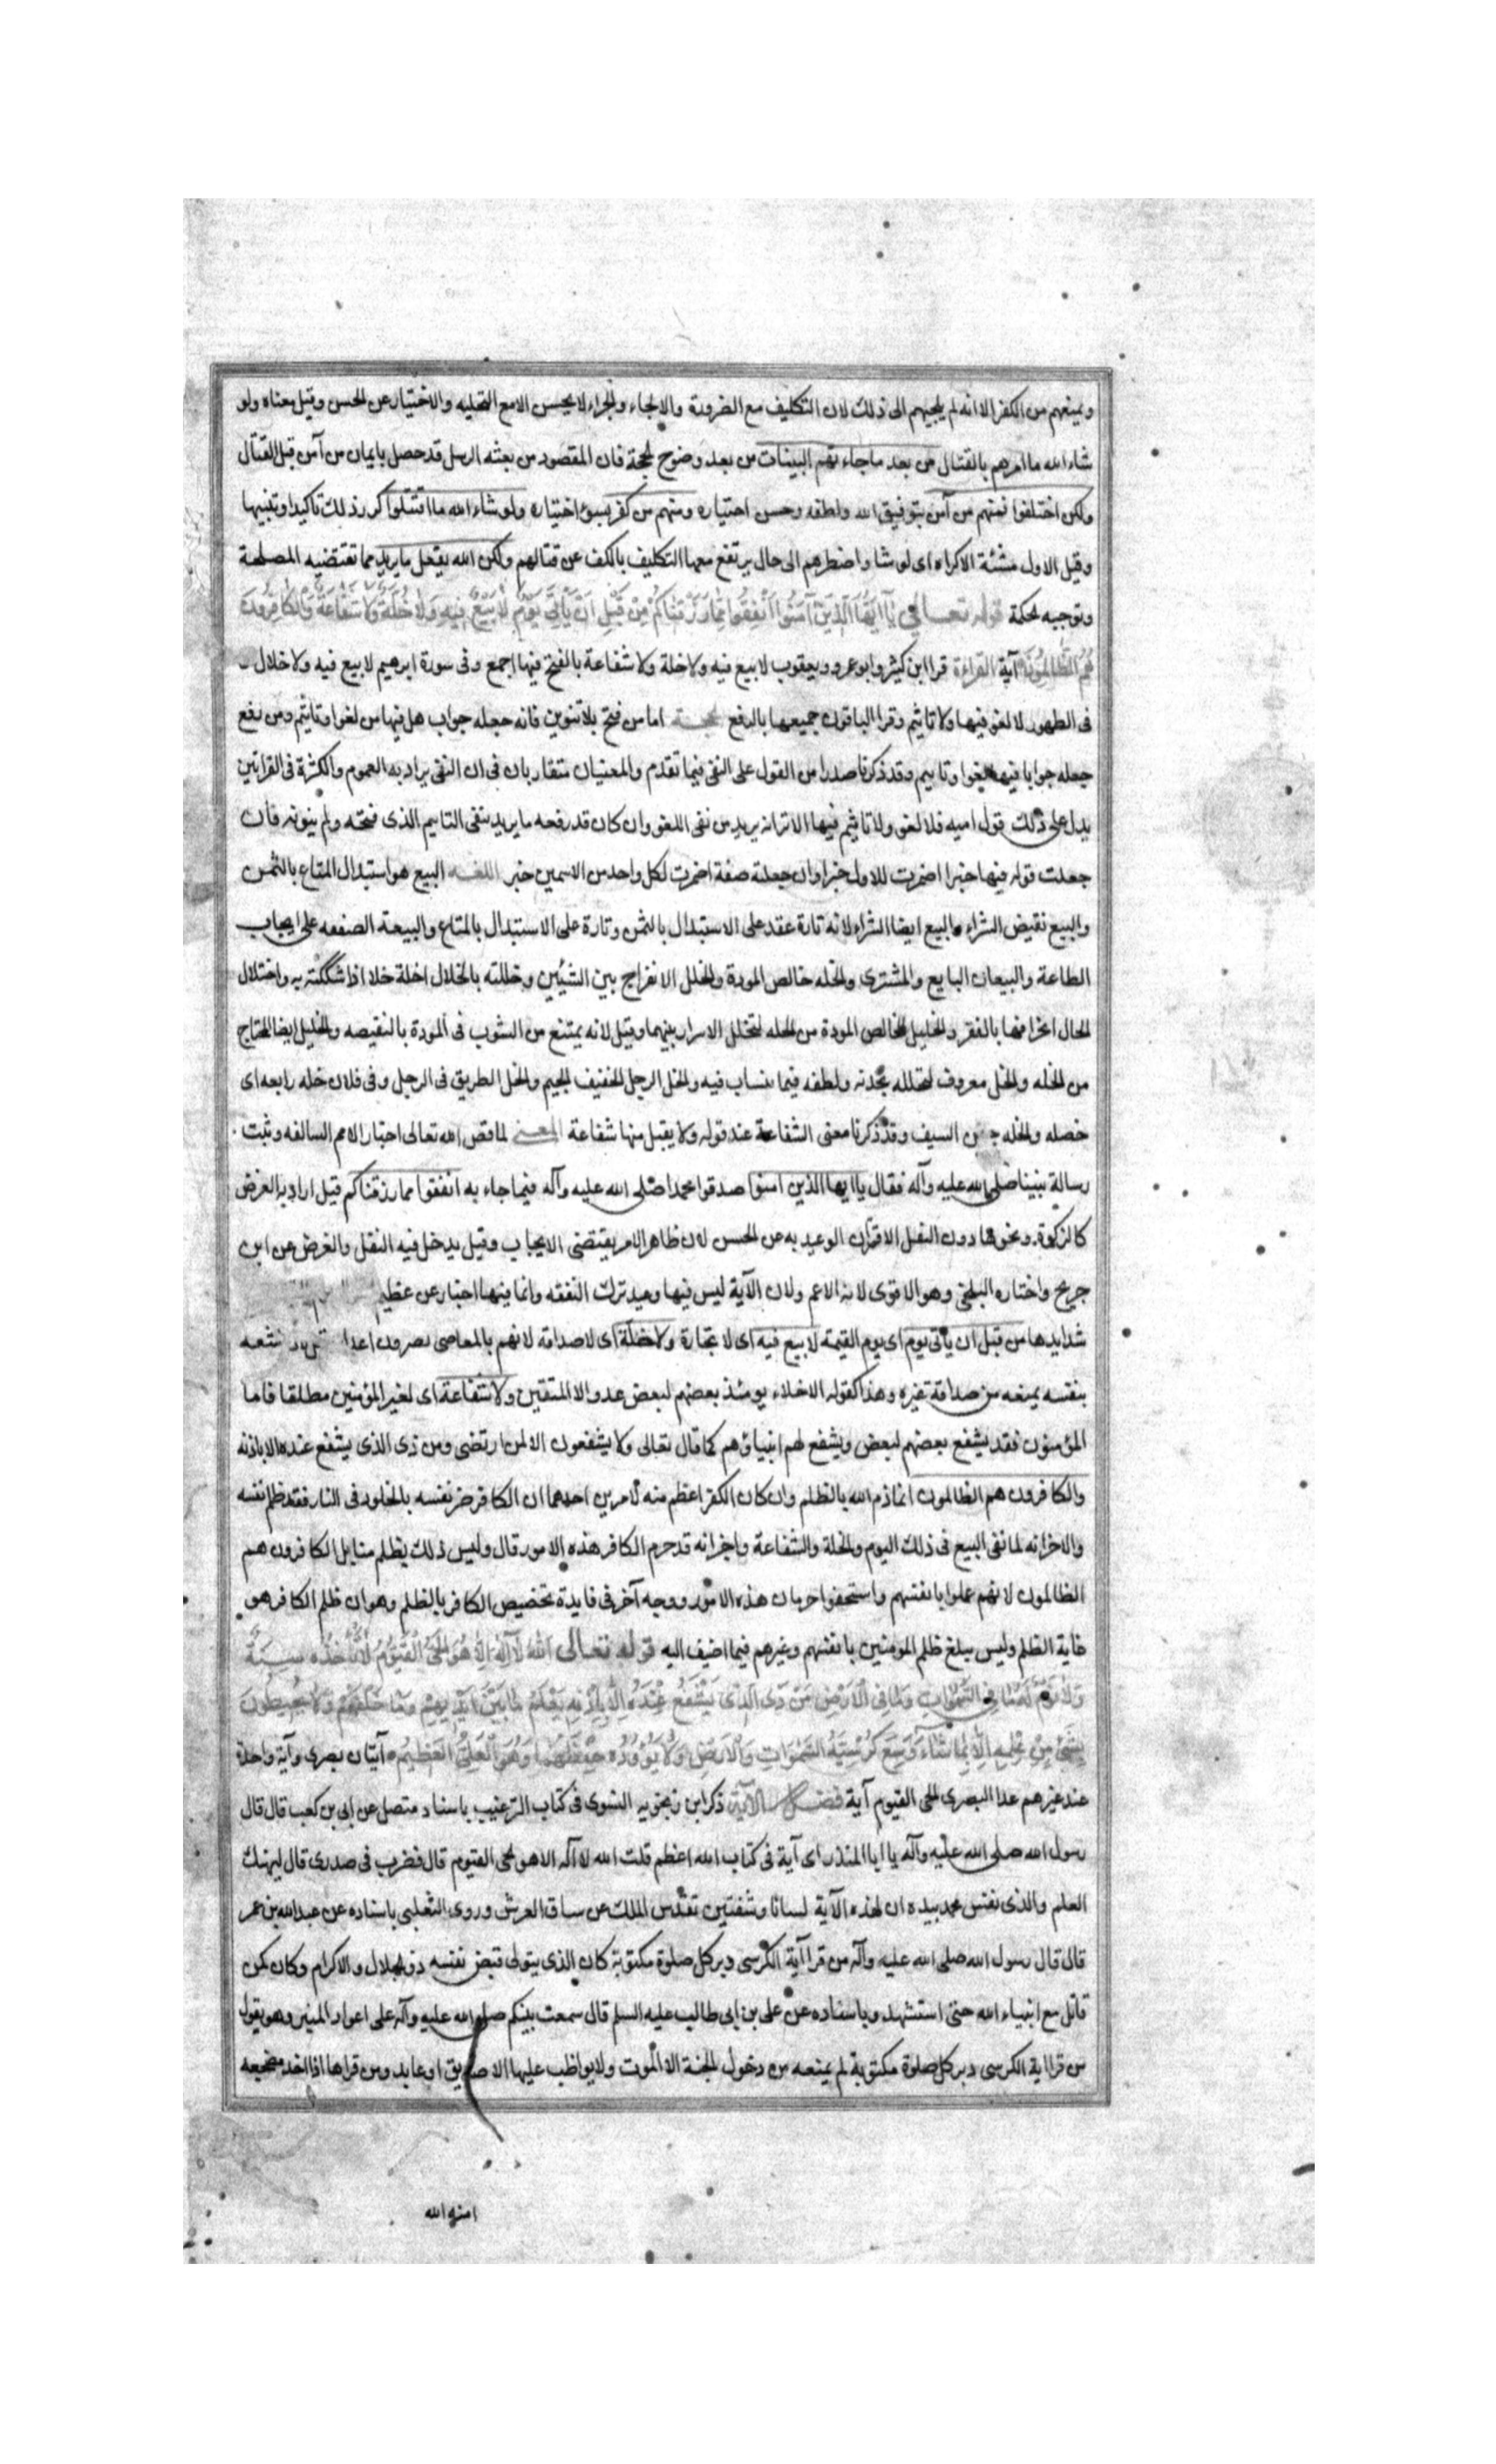 ويمنعهم من الكفر الا انه لم يلجيهم الى ذلك لان التكليف مع الضرورة والالجاء والجزاء لا يحسن الا مع التخليه والاختيار عن الحسن وقيل معناه ولو
شاء الله ما امرهم بالقتال من بعد ما جاءتهم البينات من بعد وضوح الحجة فان المقصود من بعثه الرسل قد حصل بايمان من آمن قبل القتال
ولكن اختلفوا فمنهم من آمن بتوفيق الله ولطفه وحسن اختياره ومنهم من كفر بسوء اختياره ولو شاء الله ما اقتتلوا كرر ذلك تاكيدا وتنبيها
وقيل الاول مشئة الاكراه اى لو شا واضطرهم الى حال يرتفع معها التكليف بالكف عن قتالهم ولكن الله يفعل ما يريد مما تقتضيه المصلحة
وتوجبه الحكمة قوله تعالى يا ايها الذين آمنوا انفقوا مما رزقناكم من قبل ان ياتى يوم لا بيع فيه ولا خلة ولا شفاعة والكافرون
هم الظالمون آية القراءة قرا ابن كثير وابو عمرو ويعقوب لا بيع فيه ولا خلة ولا شفاعة بالفتح فيها اجمع وفى سورة ابرهيم لا بيع فيه ولا خلال
فى الطهور لا لغو فيها ولا تاثيم وقرا الباقون جميعها بالرفع الحجة اما من فتح بلا تنوين فانه جعله جواب هل فيها من لغو او تاثيم ومن رفع
جعله جوابا فيها لغوا وتاثيم وقد ذكرنا صدرا من القول على النفى فيما تقدم والمعنيان متقاربان فى ان النفى يراد به العموم والكثرة فى القراتين
يدل على ذلك قول اميه فلا لغو ولا تاثيم فيها الا ترانه يريد من نفى اللغو وان كان قد رفعه ما يريد بنفى التاثيم الذى فتحه ولم ينونه فان
جعلت قوله فيها خبرا اضمرت للاول خبرا وان جعلته صفة اضمرت لكل واحد من الاسمين خبر اللغـه البيع هو استبدال المتاع بالثمن
والبيع نقيض الشراء والبيع ايضا الشراء لانه تارة عقد على الاستبدال بالثمن وتارة على الاستبدال بالمتاع والبيعة الصفقه على ايجاب
الطاعة والبيعان البايع والمشترى والخله خالص المودة والخلل الانفراج بين الشيئين وخللته بالخلال اخلة خلا اذا شككته به واختلال
الحال اخرافها بالفقر والخليل الخالص المودة من الخله لتخلل الاسرار بينهما وقيل لانه يمتنع من الشوب فى المودة بالنقيصه والخليل ايضا المحتاج
من الخله والخل معروف لتخلله بحدته ولطفه فيما ينساب فيه والخل الرجل الخفيف الجسم والخل الطريق فى الرمل وفى فلان خله رابعه اى
خصله والخله جفن السيف وقد ذكرنا معنى الشفاعة عند قوله ولا يقبل منها شفاعة المعنى لما قص الله تعالى اخبار الامم السالفه وثبت
رسالة نبينا صلى الله عليه وآله فقال يا ايها الذين امنوا صدقوا محمدا صلى الله عليه وآله فيما جاء به انفقوا مما رزقناكم قيل اراد به الفرض
كالزكوة ونحوها دون النفل لاقتران الوعيد به عن الحسن لان ظاهر الامر يقتضى الايجاب وقيل يدخل فيه النفل والفرض عن ابن
جريج واختاره البلخى وهو الاقوى لانه الاعم ولان الآية ليس فيها وعيد ترك النفقه وانما فيها اخبار عن عظيم
شدايدها من قبل ان ياتى يوم اى يوم القيمة لا بيع فيه اى لا تجارة ولا خلة اى لا صداقة لانهم بالمعاصى يصرون اعدا شغله
بنفسه يمنعه من صداقة غيره وهذا كقوله الاخلاء يومئذ بعضهم لبعض عدو الا المتقين ولا شفاعة اى لغير المؤمنين مطلقا فاما
المؤمنون فقد يشفع بعضهم لبعض ويشفع لهم انبياؤهم كما قال تعالى ولا يشفعون الا لمن ارتضى ومن ذى الذى يشفع عنده الا باذنه
والكافرون هم الظالمون انما ذم الله بالظلم وان كان الكفر اعظم منه لامرين احدهما ان الكافر ضر نفسه بالخلود فى النار فقد ظلم نفسه
والاخر انه لما نفى البيع فى ذلك اليوم والخلة والشفاعة واخر انه قد حرم الكافر هذه الامور قال وليس ذلك بظلم منا بل الكافرون هم
الظالمون لانهم عملوا بانفسهم واستحقوا حرمان هذه الامور ووجه آخر فى فايدة تخصيص الكافر بالظلم وهو ان ظلم الكافر هو
غاية الظلم وليس يبلغ ظلم المومنين بانفسهم وغيرهم فيما اضيف اليه قوله تعالى الله لا اله الا هو الحى القيوم لا تاخذه سنة
ولا نوم له ما فى السموات وما فى الارض من ذى الذى يشفع عنده الا باذنه يعلم ما بين ايديهم وما خلفهم ولا يحيطون
بشىء من علمه الا بما شاء وسع كرسيه السموات والارض ولا يؤوده حفظهما وهو العلى العظيم آيتان بصرى وآية واحدة
عند غيرهم عدا البصرى الحى القيوم آية فضل الآية ذكر ابن زنجويه النسوى فى كتاب الترغيب باسناد متصل عن ابى بن كعب قال قال
رسول الله صلى الله عليه وآله يا ابا المنذر اى آية فى كتاب الله اعظم قلت الله لا آله الا هو الحى القيوم قال فضرب فى صدرى قال ليهنك
العلم والذى نفس محمد بيده ان لهذه الآية لسانا وشفتين تقدس الملك عن ساق العرش وروى الثعلبى باسناده عن عبدالله بن عمر
قال قال رسول الله صلى الله عليه وآله من قرا آية الكرسى دبر كل صلوة مكتوبة كان الذى يتولى قبض نفسه ذو الجلال والاكرام وكان كمن
قاتل مع انبياء الله حتى استشهد وباسناده عن على بن ابى طالب عليه السلم قال سمعت نبيكم صلى الله عليه وآله على اعواد المنبر وهو يقول
من قرا اية الكرسى دبر كل صلوة مكتوبة لم يمنعه من دخول الجنة الا الموت ولا يواظب عليها الا صديق او عابد ومن قراها اذا اخذ مضجعه
امنه الله